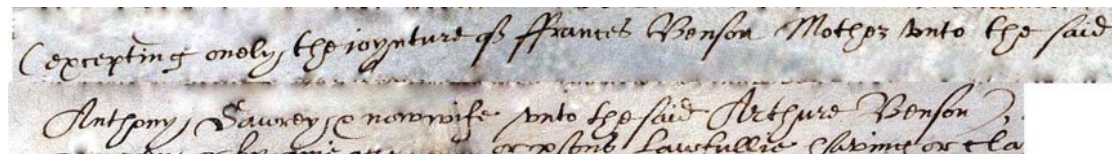 (excepting onely, the ioynture of ffrances Benson Mother vnto the said
Anthony, Sawrey, & now wife vnto the said Arthure Benson),
lawfullie claiming or cla